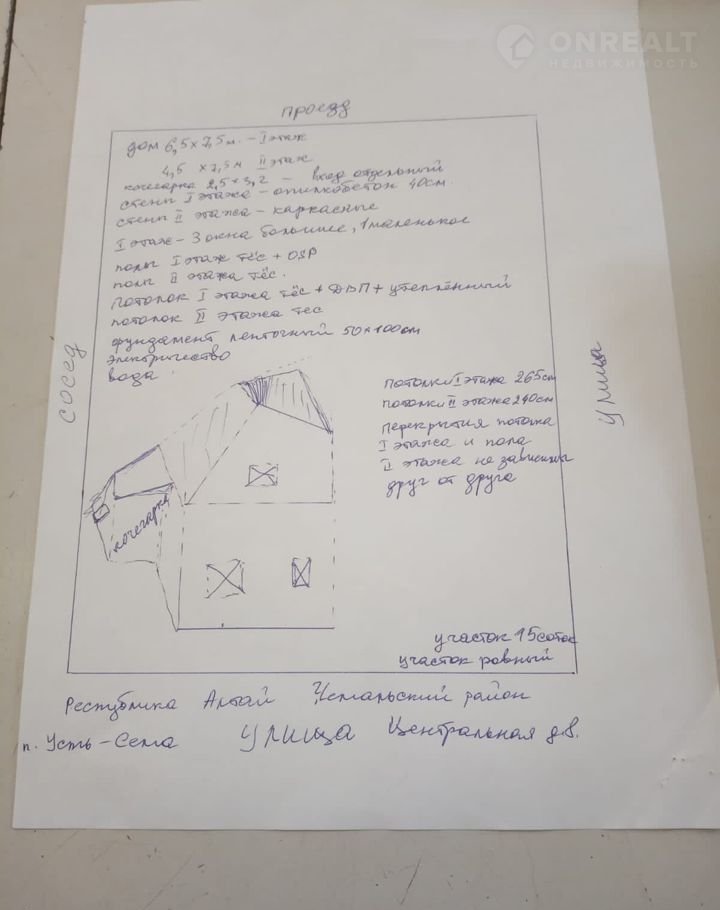 ONREALT
НЕДВИЖИМОСТЬ
проезд
дом 6,5 х 7,5 м. - I этаж
4,5 х 7,5 м II этаж
кочегарка 2,5 х 3,2 - вход отдельный
стены I этажа - опилкобетон 40см.
стены II этажа - каркасные
I этаж - 3 окна большие, 1 маленькое
полы I этаж тёс + OSP
полы II этажа тёс.
потолок I этажа тёс + ДВП + утеплённый
потолок II этажа тес
фундамент ленточный 50х100см
электричество
вода.
сосед
улица
потолки I этажа 265см
потолки II этажа 240см
перекрытия потолка
I этажа и пола
II этажа не зависимы
друг от друга
кочегарка
участок 15 соток
участок ровный
Республика Алтай Чемальский район
п. Усть-Сема улица Центральная д.8.